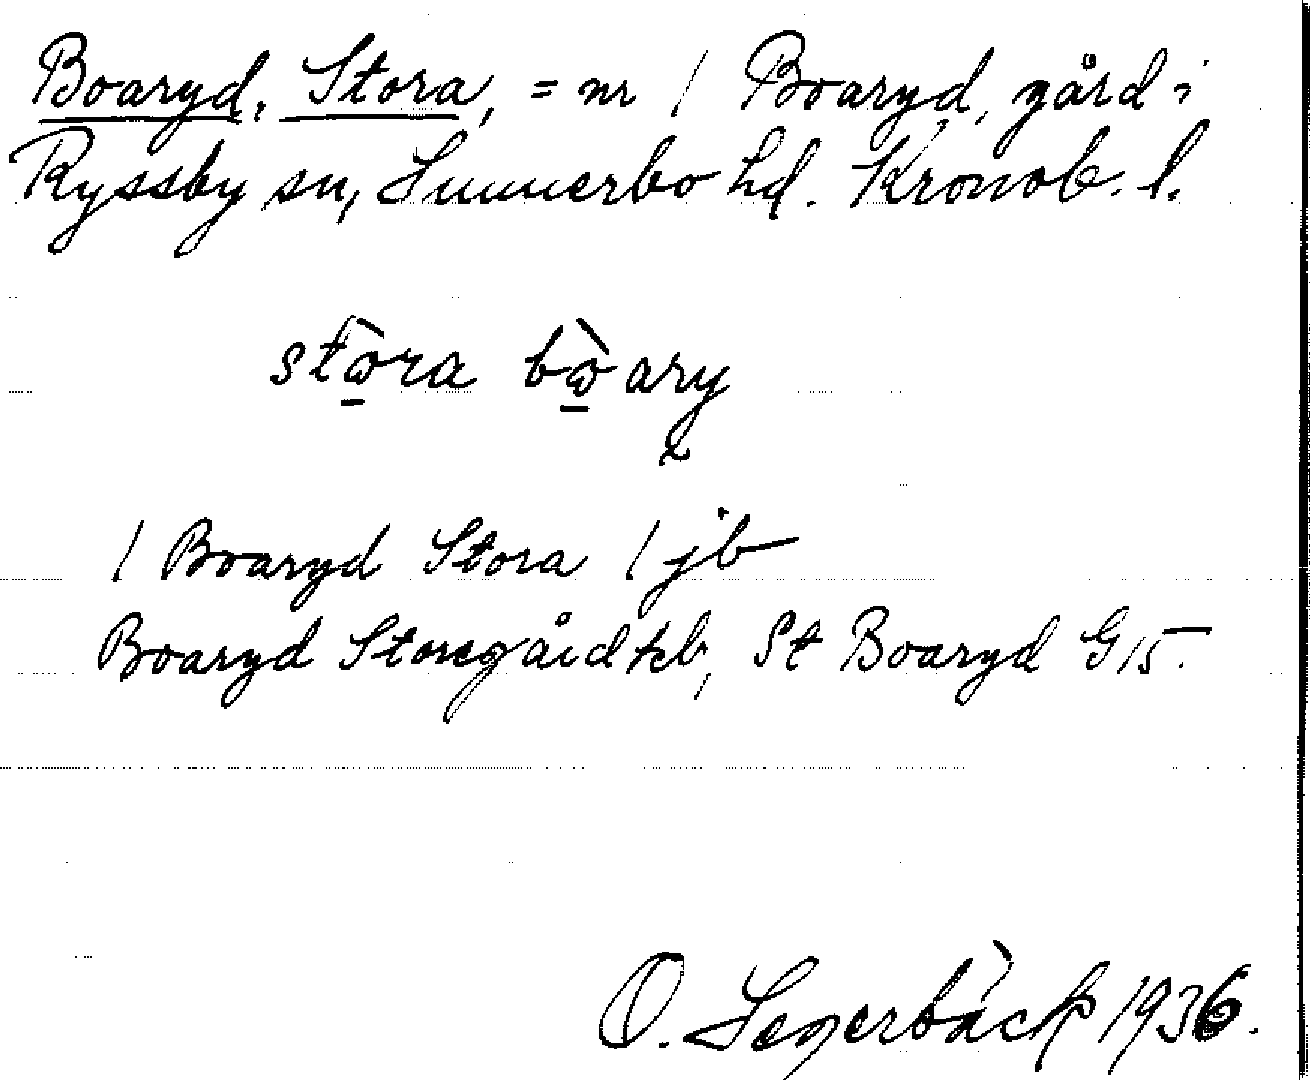 Boaryd, Stora, = nr 1 Boaryd, gård i
Ryssby sn, Sunnerbo hd. Kronob. l.
stòra bòary
1 Boaryd Stora 1 jb
Boaryd Storegård kb, St Boaryd G 15.
O. Segerbäck 1936.